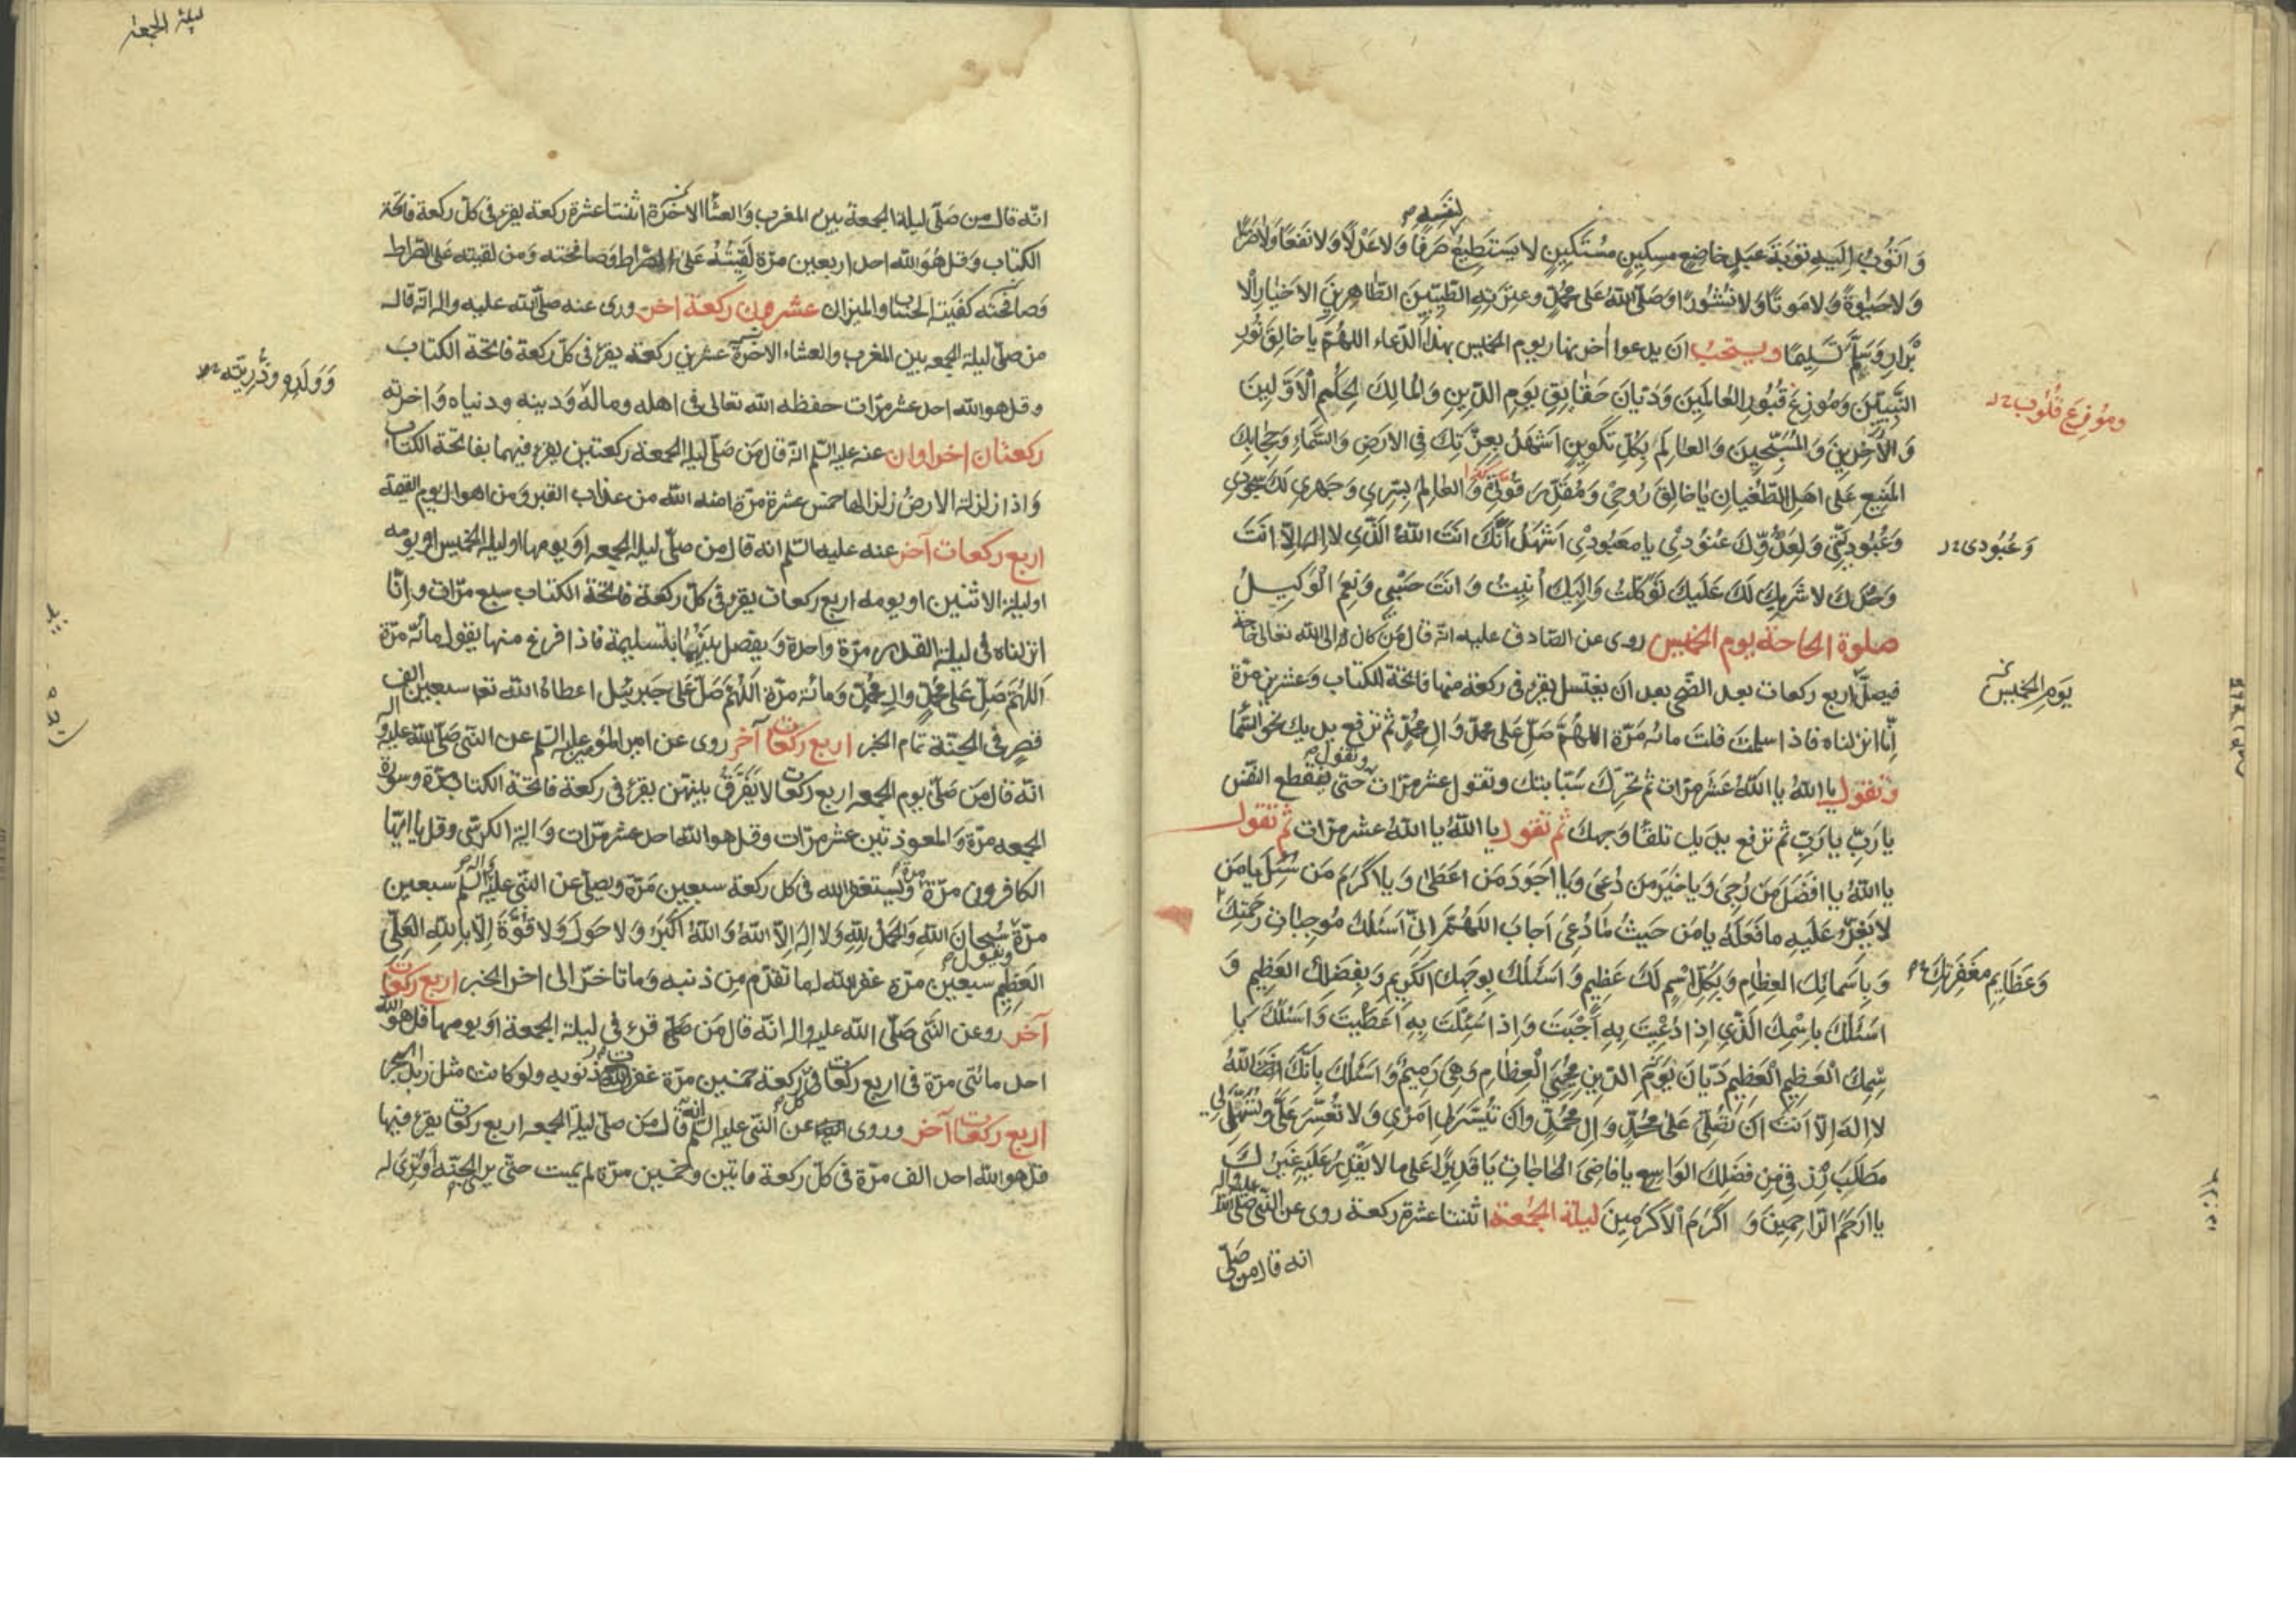 لنفسه
وَاَتُوبُ اِلَيهِ تَوبَةَ عَبدٍ خاضِعٍ مِسكِينٍ مُستَكِينٍ لا يَستَطِيعُ صَرفًا وَلا عَدْلًا وَلا نَفعًا وَلا ضَرًّا
وَلا حَيٰوةً وَلا مَوتًا وَلا نُشُورًا وَصَلَّى اللهُ عَلى مُحَمَّدٍ وعِترَتِهِ الطَّيِّبِينَ الطَّاهِرِينَ الاَخيٰارِ الْاَ
بْرَارِ وَسَلَّمَ تَسلِيمًا ويستحبّ ان يدعوا اٰخر نهار يوم الخميس بهذا الدّعاء اللهُمَّ يا خالِقَ نُورِ
النَّبِيّينَ وَمُوزِعَ قُبُورِ العالَمِينَ وَدَيّانَ حَقايِقِ يَومِ الدّينِ وَالمالِكَ لِحُكمِ الْاَوَّلِينَ
ومُوزِعَ قُلُوب
وَالْاٰخِرِينَ وَالمُسَبِّحِينَ وَالعالِمَ بِكُلِّ تَكوِينٍ اَشهَدُ بِعِزَّتِكَ فِي الاَرضِ وَالسَّماءِ وَحِجابِكَ
المَنِيعِ عَلى اَهلِ الطُّغيانِ يا خالِقَ رُوحِي وَمُقَدِّرَ قُوتِي وَالعالِمَ بِسِرِّي وَجَهرِي لَكَ سُجُودِي
وَعُبُودِيَّتِي وَلِعَدُوِّكَ عُنُودِي يا مَعبُودِي اَشهَدُ اَنَّكَ اَنتَ اللهُ الَّذِي لا اِلهَ اِلّا اَنتَ
وَعُبُودى
وَحدَكَ لا شَرِيكَ لَكَ عَلَيكَ تَوَكَّلتُ وَاِلَيكَ اُنِيبُ وَاَنتَ حَسبِي وَنِعمَ الْوَكِيلُ
صلوة الحاجة يوم الخميس روى عن الصّادق عليه انّه قال مَن كان له الى الله تعالى حاجة
فليصلّ اربع ركعات بعد الضّحى بعد ان يغتسل يقرء فى ركعة منها فاتحة الكتاب وعشرين مرّة
يَومِ الخَميسِ
اِنّا انزلناه فاذا سلمت قلت مائه مَرّة اللهُمَّ صَلِّ عَلى محمّد وَالِ محمّدٍ ثم ترفع يديك نحو السّماء
وتقول يا اللهُ يا اللهُ عَشَر مرّات ثم تحرّك سَبّابتك وتقول عشر مرّات حتى ينقطع النفَس
وتقول
يا رَبِّ يا رَبِّ ثم ترفع يديك تلقاء وَجهك ثم تقول يا اللهُ يا اللهُ عشر مرّات ثم تقول
يا اللهُ يا اَفضَلَ مَن رُجِيَ وَيا خَيرَ مَن دُعِيَ وَيا اَجوَدَ مَن اَعطىٰ وَيا اَكرَمَ مَن سُئِلَ يا مَن
لا يَعِزُّ عَلَيهِ ما فَعَلَهُ يا مَن حَيثُ ما دُعِيَ اَجابَ اللّهُمَّ اِنّي اَسئَلُكَ مُوجِباتِ رَحمَتِكَ
وَعَظَايِمِ مَغفِرَتِكَ
وَبِاَسمائِكَ العِظامِ وَبِكُلِّ اسْمٍ لَكَ عَظِيمٍ وَاَسئَلُكَ بِوَجهِكَ الكَرِيمِ وَبِفَضلِكَ العَظِيمِ وَ
اَسئَلُكَ بِاسْمِكَ الَّذِي اِذا دُعِيتَ بِهِ اَجَبتَ وَاِذا سُئِلتَ بِهِ اَعطَيتَ وَاَسئَلُكَ بِا
سْمِكَ العَظِيمِ الْعَظِيمِ دَيّانَ يَومِ الدّينِ مُحيِي الْعِظٰامِ وَهِيَ رَمِيمٌ وَاَسئَلُكَ بِاَنَّكَ اَنتَ اللهُ
لا اِلهَ اِلّا اَنتَ اَن تُصَلِّيَ عَلى مُحَمَّدٍ وَالِ مُحَمَّدٍ وَاَن تُيَسِّرَ لِي اَمرِي وَلا تُعَسِّرَ عَلَيَّ وَتُسَهِّلَ لِي
مَطلَبَ رِزقِي مِن فَضلِكَ الوَاسِعِ يا قاضِيَ الحاجاتِ يا قَدِيرًا عَلى ما لا يَقدِرُ عَلَيهِ غَيرُكَ
يا اَرحَمَ الرّاحِمِينَ وَاَكرَمَ الْاَكرَمِينَ ليلة الجُمُعة اثنتا عشرة ركعة روى عن النّبى صلى الله عليه واله
انه قال من صَلّى
ليلة الجمعة
انّه قال من صَلّى ليلة الجمعة بين المغرب وَالعشاء الاخرة اثنتا عشرة ركعة يقرء فى كلّ ركعة فاتحة
الكتاب وَقل هُوَ الله احد اربعين مرّة لَقِيتُهُ عَلى الصّراط وَصافحته وَمن لقيته على الصّراط
وَصافحته كفيته الحساب والميزان عشرون ركعة اخر روى عنه صلّى الله عليه واله انّه قال
من صلّى ليلة الجمعه بين المغرب والعشاء الاخرة عشرين ركعة يقرء فى كلّ ركعة فاتحة الكتاب
وَوَلَدِهِ وذُرّيَّتِه
وقل هو الله احد عشر مرّات حفظه الله تعالى فى اهله وماله وَدينه ودنياه وَاخرته
ركعتان اخراوان عنه عليه السّلم انّه قال مَن صَلّى ليلة الجمعة ركعتين يقرء فيهما بفاتحة الكتاب
وَاذا زلزلة الارضُ زلزالها خمس عشرة مرّة امنه الله من عذاب القبر وَمن اهوال يوم القيمة
اربع ركعات آخر عنه عليه السّلم انه قال من صلّى ليلة الجمعه اوَ يومها او ليلة الخميس او يومه
او ليلة الاثنين او يومه اربع ركعات يقرء فى كلّ ركعة فاتحة الكتاب سبع مرّات وانّا
انزلناه فى ليلة القدر مرّة واحدة وَيفصل بينهما بتسليمة فاذا فرغ منها يقول مائه مرّة
اَللهُمَّ صَلِّ عَلى مُحَمَّدٍ والِ مُحَمَّدٍ وَمائة مرّة اَللهُمَّ صَلِّ عَلى جَبرئيل اعطاه الله تعا سبعين الف
قصرٍ فى الجنّة تمام الخبر اربع ركعات آخر روى عن امير المؤمنين عليه السّلم عن النبى صَلّى الله عليه واله
انّه قال مَن صَلّى يوم الجمعه اربع ركعات لا يفَرّق بينهنّ يقرء فى ركعة فاتحة الكتاب مرّة وسورة
الجمعه مرّة وَالمعوذتين عشر مرّات وقل هو الله احد عشر مرّات وَاية الكرسّى وقل يا ايّها
الكافرون مرّة وَيَستغفر الله فى كل ركعة سبعين مَرّة ويصلّى عن النّبى عليه السّلم سبعين
مرّة سُبحانَ اللهِ وَالحَمدُ لِلّهِ وَلا اِلهَ اِلّا اللهُ وَاللهُ اَكبَرُ وَلا حَولَ وَلا قُوَّةَ اِلّا بِاللهِ العَلِيِّ
ويقول
العَظِيمِ سبعين مرّة غفر الله له ما تقدّم مِن ذنبه وَما تاخّر الى اخر الخبر اربع ركعات
آخر روى عن النّبَى صَلّى الله عليه واله انّه قال مَن قرء فى ليلة الجمعة اوَ يومها قل هو الله
احد مائتى مرّة فى اربع ركعات فى كل ركعة خمسين مرّة غفرت ذنوبه ولو كانت مثل زبد البحر
اربع ركعات آخر وروى عن النّبى عليه السّلم انّه قال مَن صلّى ليلة الجمعه اربع ركعات يقرء فيها
قل هو الله احد الف مرّة فى كلّ ركعة مائتين وخمسين مرّة لم يمت حتّى يرى الجنّة اَو تُرى له